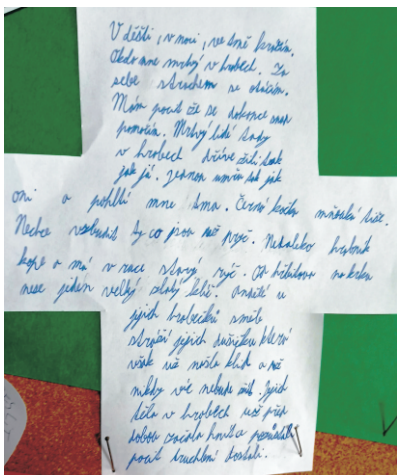 V dešti, v noci, ve tmě kráčím.
Okolo mne mrtvý v hrobech. Za
sebe strachem se otáčím.
Mám pocit že se dokonce snad
pomočím. Mrtvý lidé tady
v hrobech dříve žili tak
jak já. jednou umřu tak jak
oni a pohltí mne tma. Černá kočka mňouká tiše.
Nechce vzbudit ty co jsou už pryč. Nedaleko hrobník
kope a má v ruce starý rýč. Od hřbitova na krku
nese jeden velký zlatý klíč. Andělé u
jejich hrobečků smělé
stráží jejich dušičku která
však už našla klid a už
nikdy více nebude žít. jejich
těla v hrobech už před
dobou začala hnít a pozůstalí
pocit truchlení dostali.